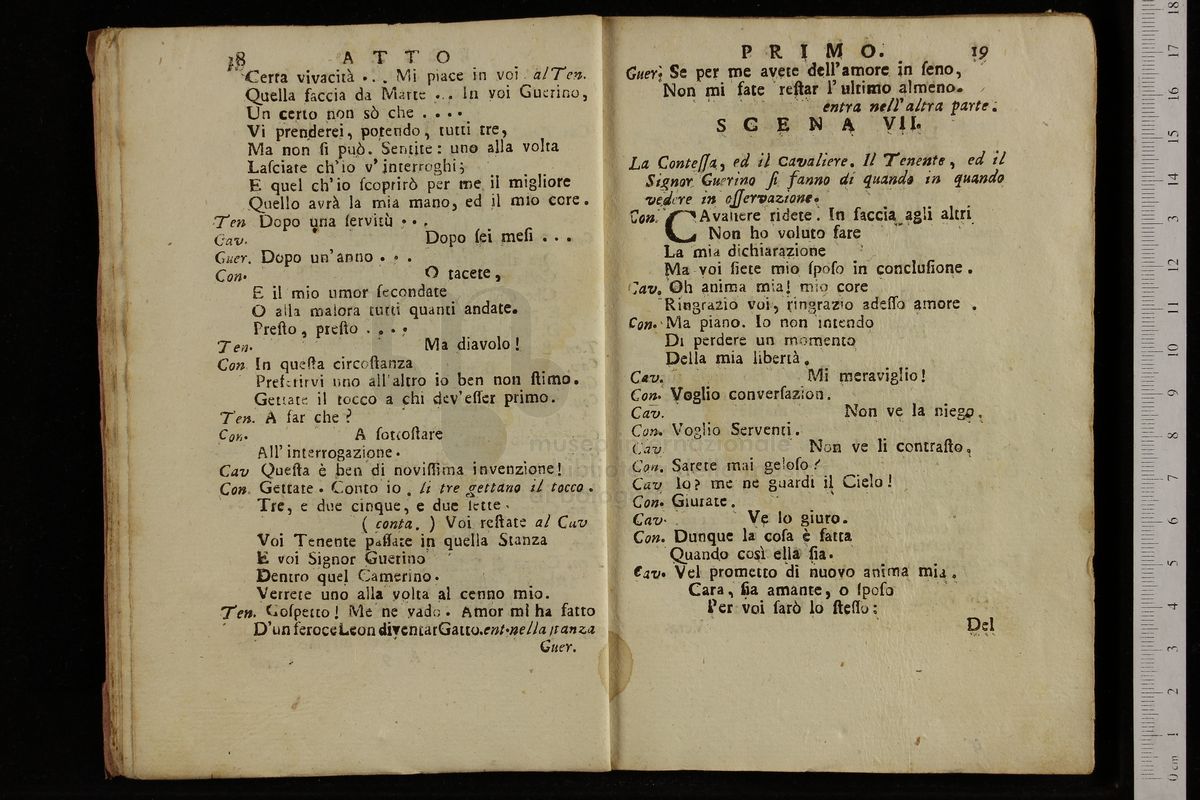 18 ATTO
Certa vivacità ... Mi piace in voi al Ten.
Quella faccia da Marte ... In voi Guerino,
Un certo non sò che ....
Vi prenderei, potendo, tutti tre,
Ma non ſi può. Sentite: uno alla volta
Laſciate ch'io v'interroghi;
E quel ch'io ſcoprirò per me il migliore
Quello avrà la mia mano, ed il mio core.
Ten Dopo una ſervitù ...
Cav. Dopo ſei meſi ...
Guer. Dopo un'anno ...
Con. O tacete,
E il mio umor ſecondate
O alla malora tutti quanti andate.
Preſto, preſto ....
Ten. Ma diavolo!
Con In queſta circoſtanza
Preferirvi uno all'altro io ben non ſtimo.
Gettate il tocco a chi dev'eſſer primo.
Ten. A far che?
Con. A ſottoſtare
All'interrogazione.
Cav Queſta è ben di noviſſima invenzione!
Con. Gettate. Conto io. li tre gettano il tocco.
Tre, e due cinque, e due ſette.
( conta. ) Voi reſtate al Cav
Voi Tenente paſſate in quella Stanza
E voi Signor Guerino
Dentro quel Camerino.
Verrete uno alla volta al cenno mio.
Ten. Coſpetto! Me ne vado. Amor mi ha fatto
D'un feroce Leon diventar Gatto. ent. nella ſtanza
Guer.
PRIMO. 19
Guer. Se per me avete dell'amore in ſeno,
Non mi fate reſtar l'ultimo almeno.
entra nell'altra parte.
SCENA VII.
La Conteſſa, ed il Cavaliere. Il Tenente, ed il
Signor Guerino ſi fanno di quando in quando
vedere in oſſervazione.
Con. CAvaliere ridete. In faccia agli altri
Non ho voluto fare
La mia dichiarazione
Ma voi ſiete mio ſpoſo in concluſione.
Cav. Oh anima mia! mio core
Ringrazio voi, ringrazio adeſſo amore.
Con. Ma piano. Io non intendo
Di perdere un momento
Della mia libertà.
Cav. Mi meraviglio!
Con. Voglio converſazion.
Cav. Non ve la niego.
Con. Voglio Serventi.
Cav Non ve li contraſto.
Con. Sarete mai geloſo?
Cav Io? me ne guardi il Cielo!
Con. Giurate.
Cav. Ve lo giuro.
Con. Dunque la coſa è fatta
Quando così ella ſia.
Cav. Vel prometto di nuovo anima mia.
Cara, ſia amante, o ſpoſo
Per voi farò lo ſteſſo:
Del